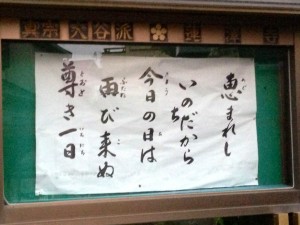 真宗大谷派
恵まれし
いのちだから
今日の日は
再び来ぬ
尊き一日